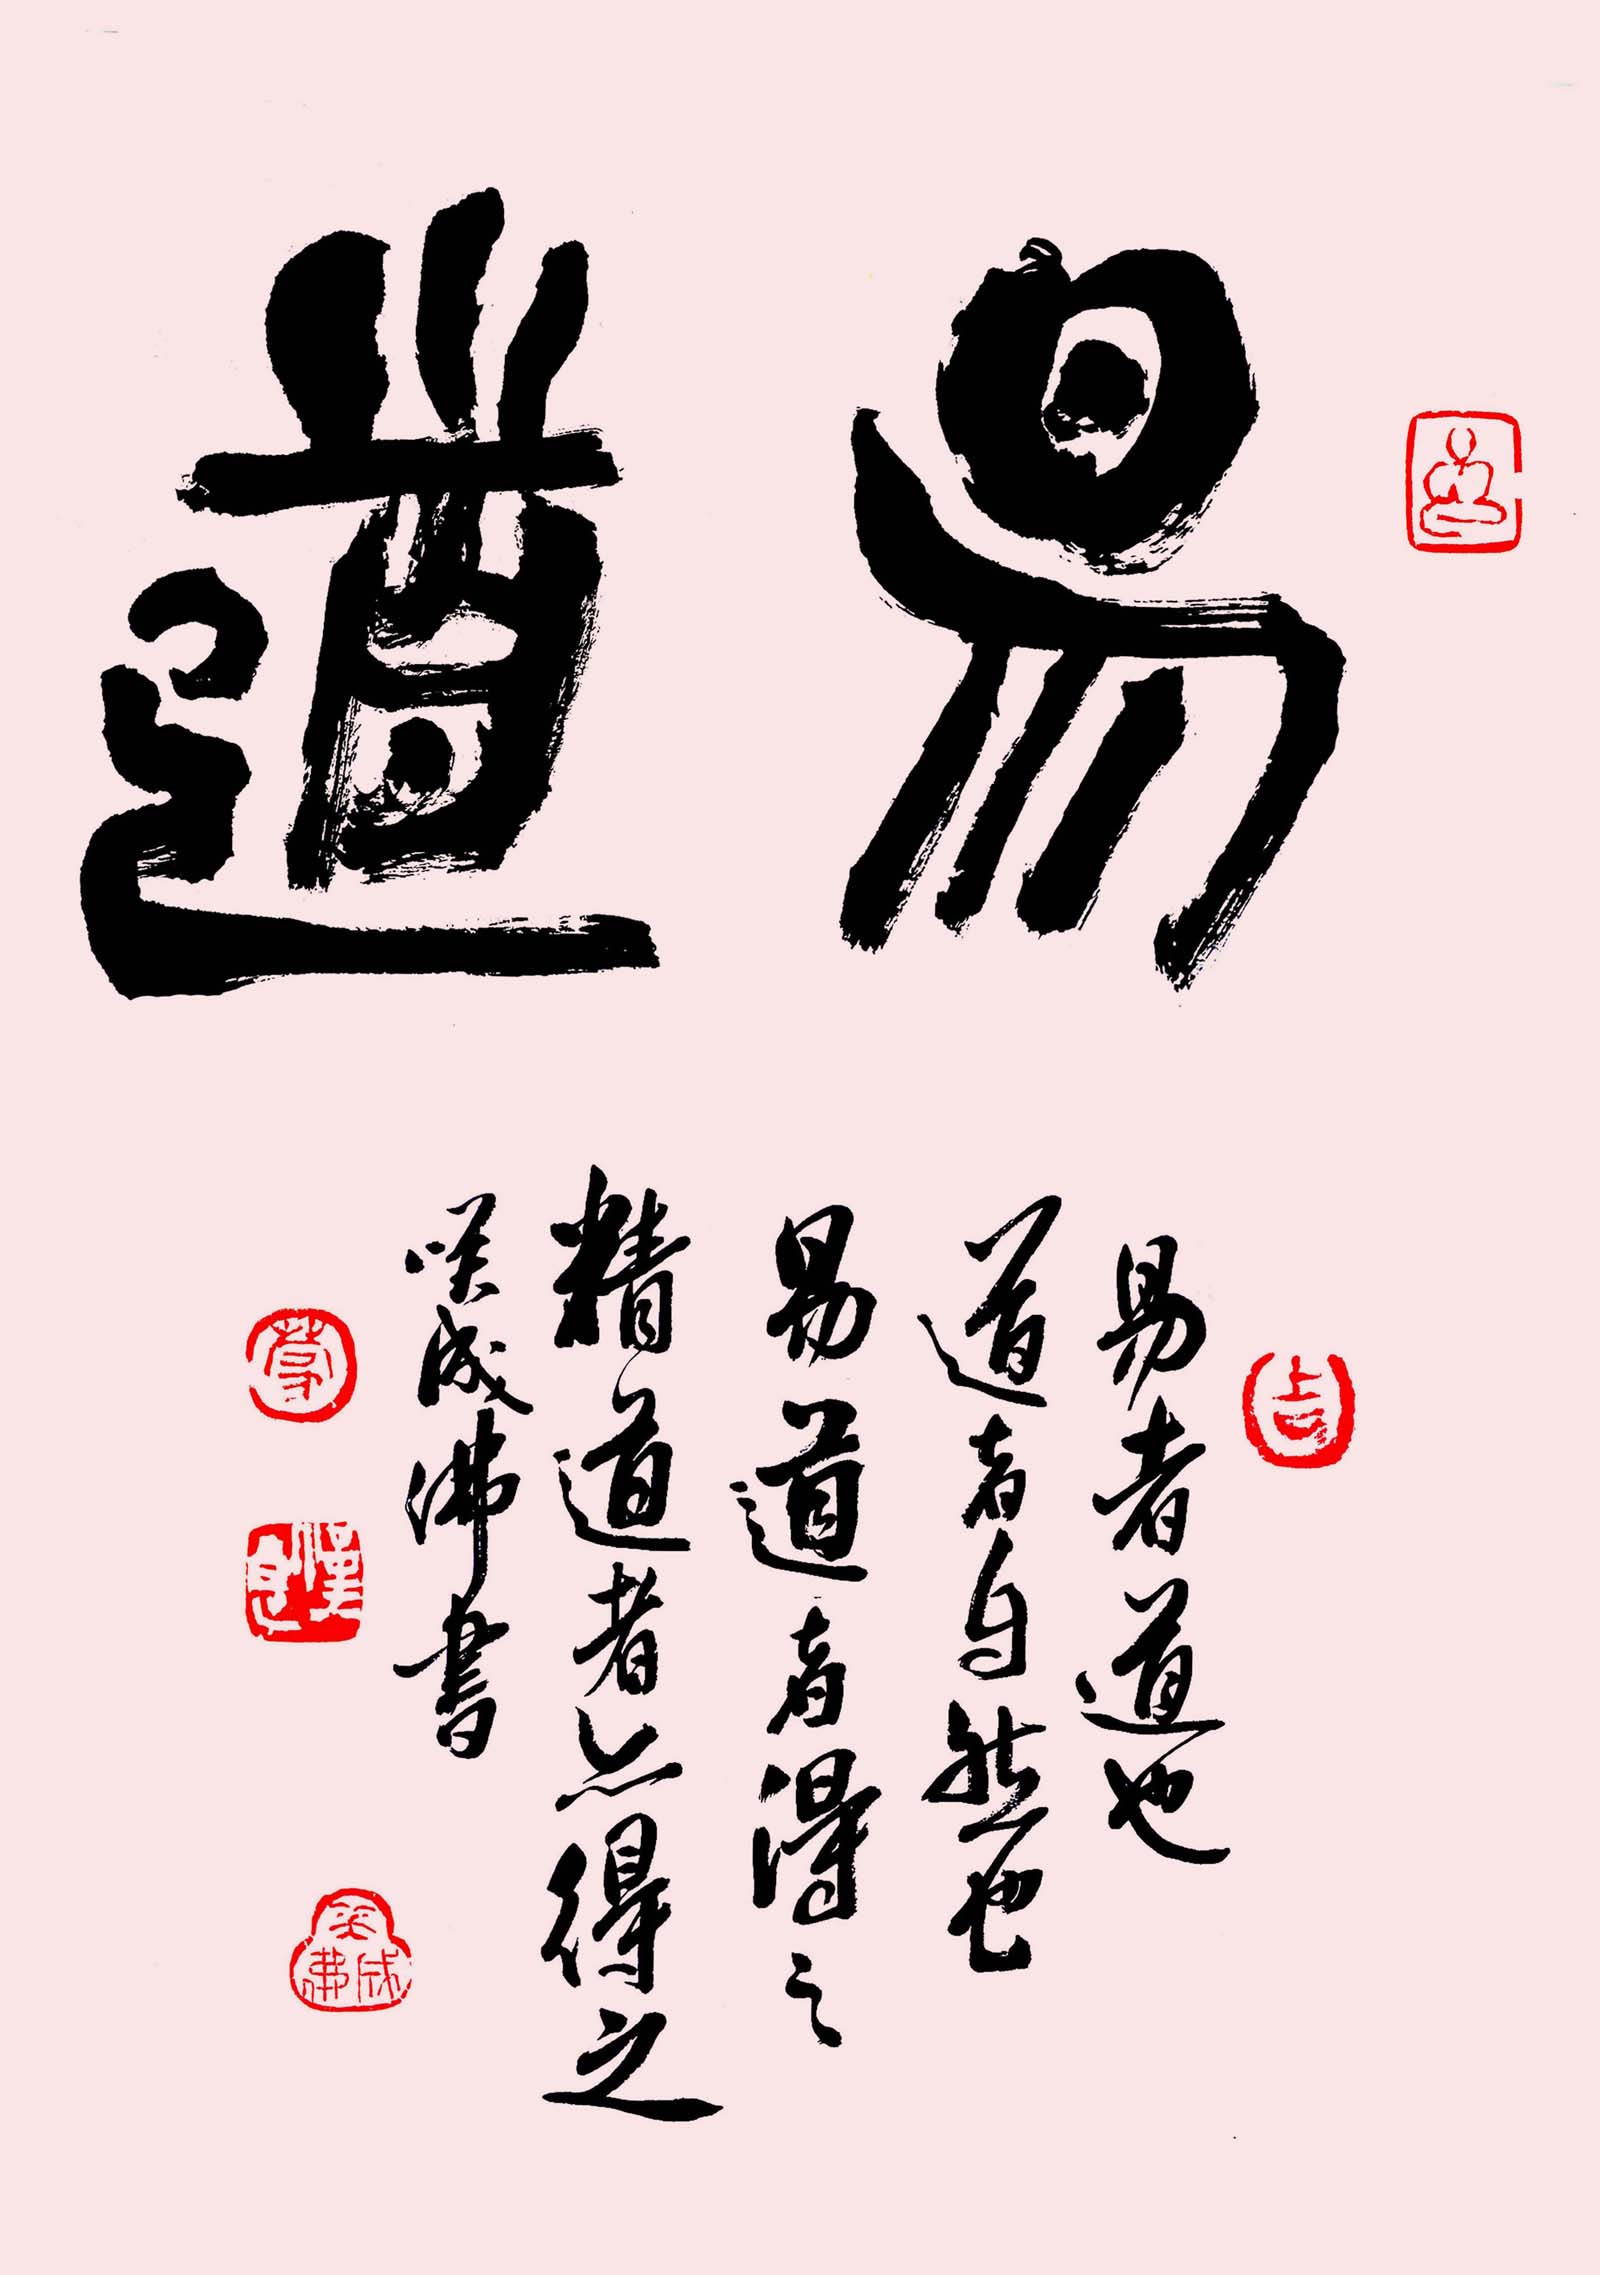 易道
易者道也
道者自然也
易道者得之
精道者亦得之
咲成佛书
吉
笑成佛